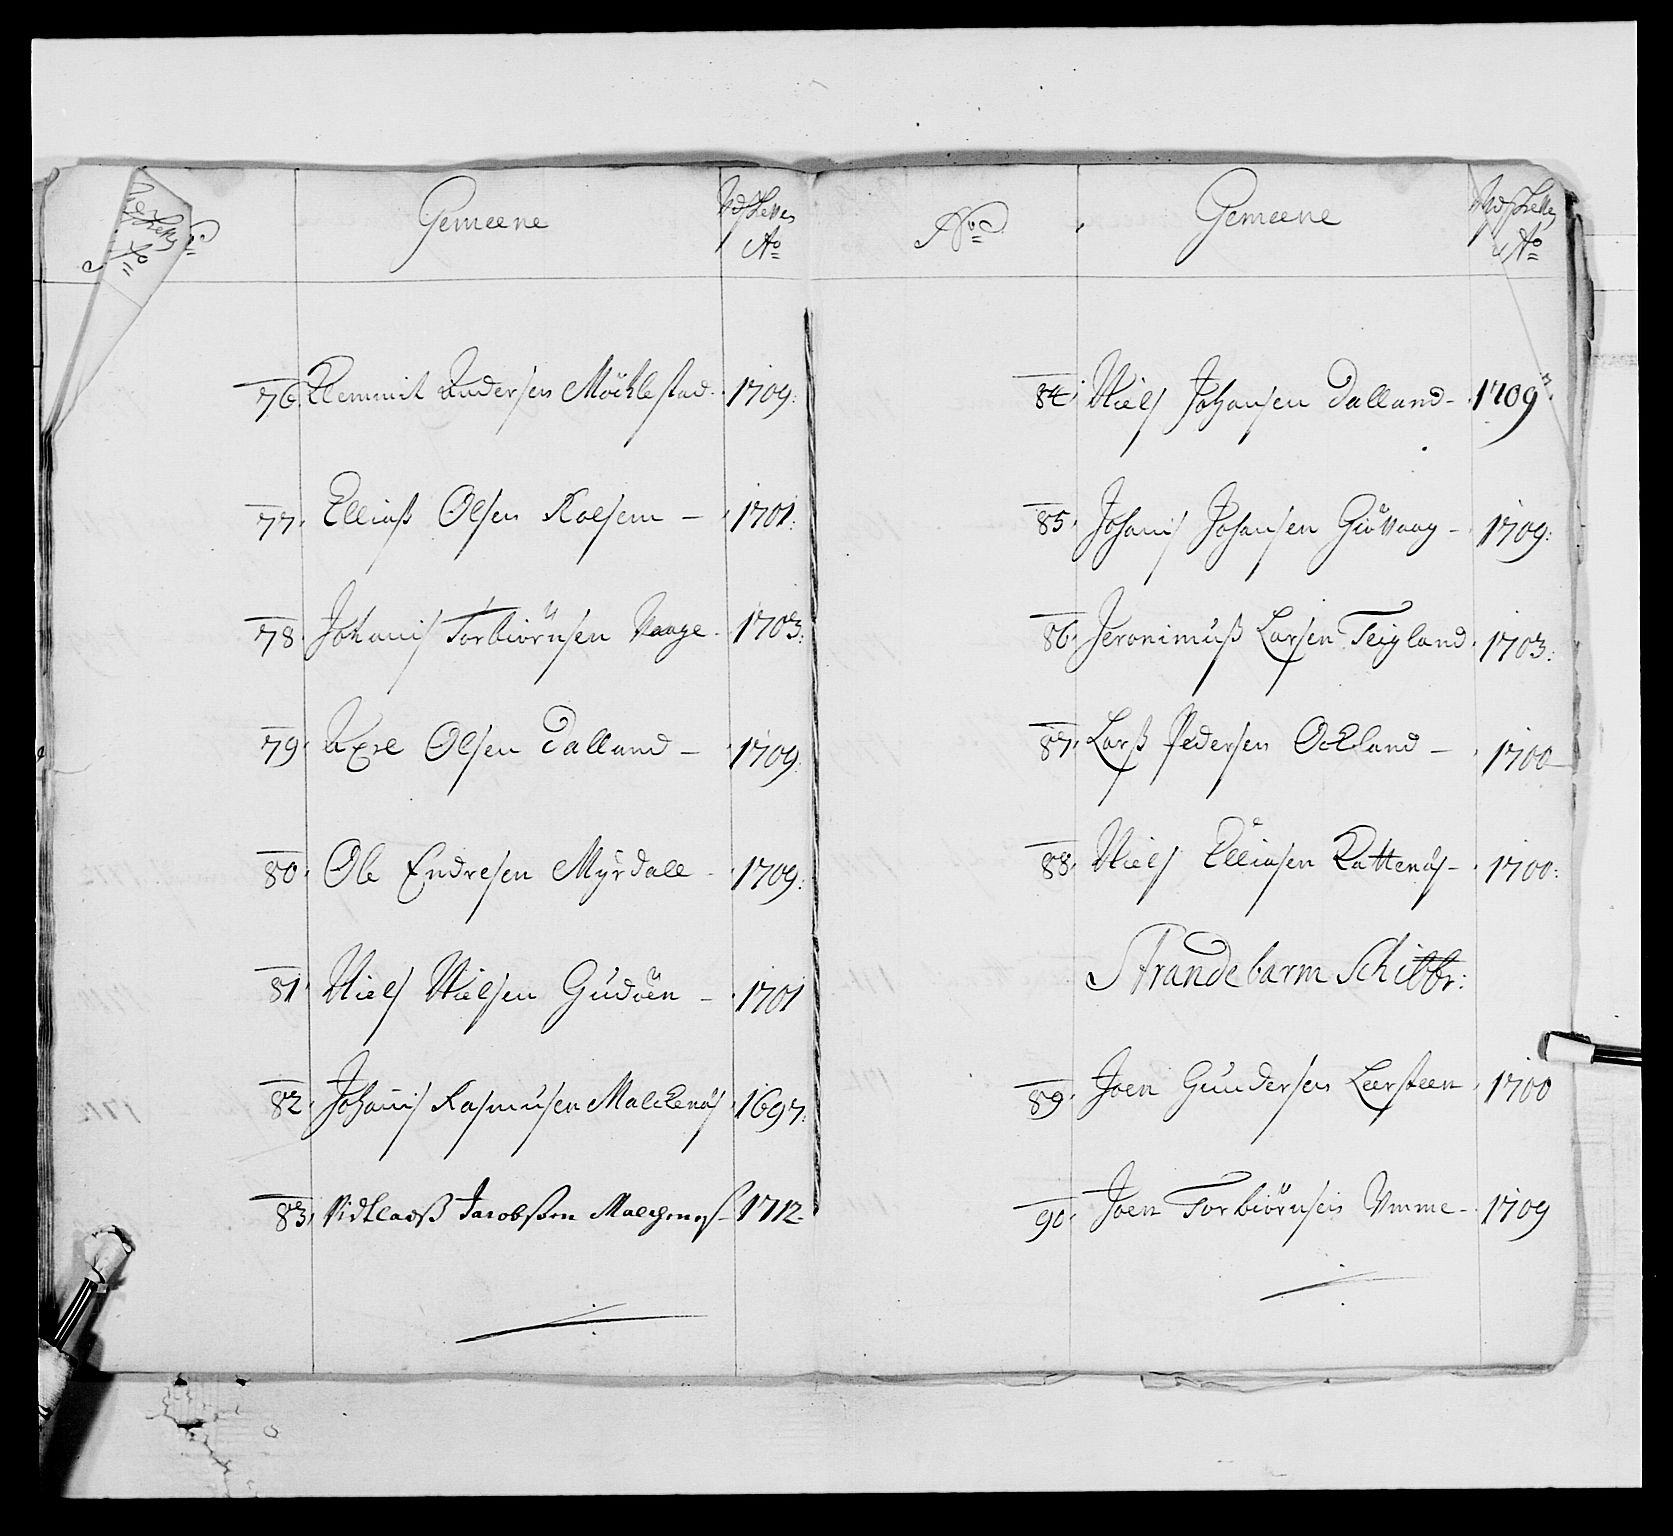 Gemeene
Ao
76. Clemmit Andersen Möchlestad 1709:
77. Elliaß Olsen Rolsem – 1701:
78. Johanis Torbiörnsen Waage. 1703:
79. Axel Olsen Dalland – 1709.
80. Ole Endresen Myrdall – 1709:
81. Niels Nielsen Gudöen – 1701
82. Johanis Rasmusen Malckenäs 1697:
83. Jacobßen 1712.
No Gemeene
Ao
84. Niels Johansen Dalland – 1709
85. Johanis Johansen Giövaag – 1709:
86. Jeronimuß Larsen Teigland 1703:
87. Larß Pedersen Ockland – 1700
88. Niels Elliasen Rattenäs – 1700:
Strandebarm Schibbr:
89. Joen Gundersen Leersteen 1700
90. Joen Torbiörnsen Vmme – 1709